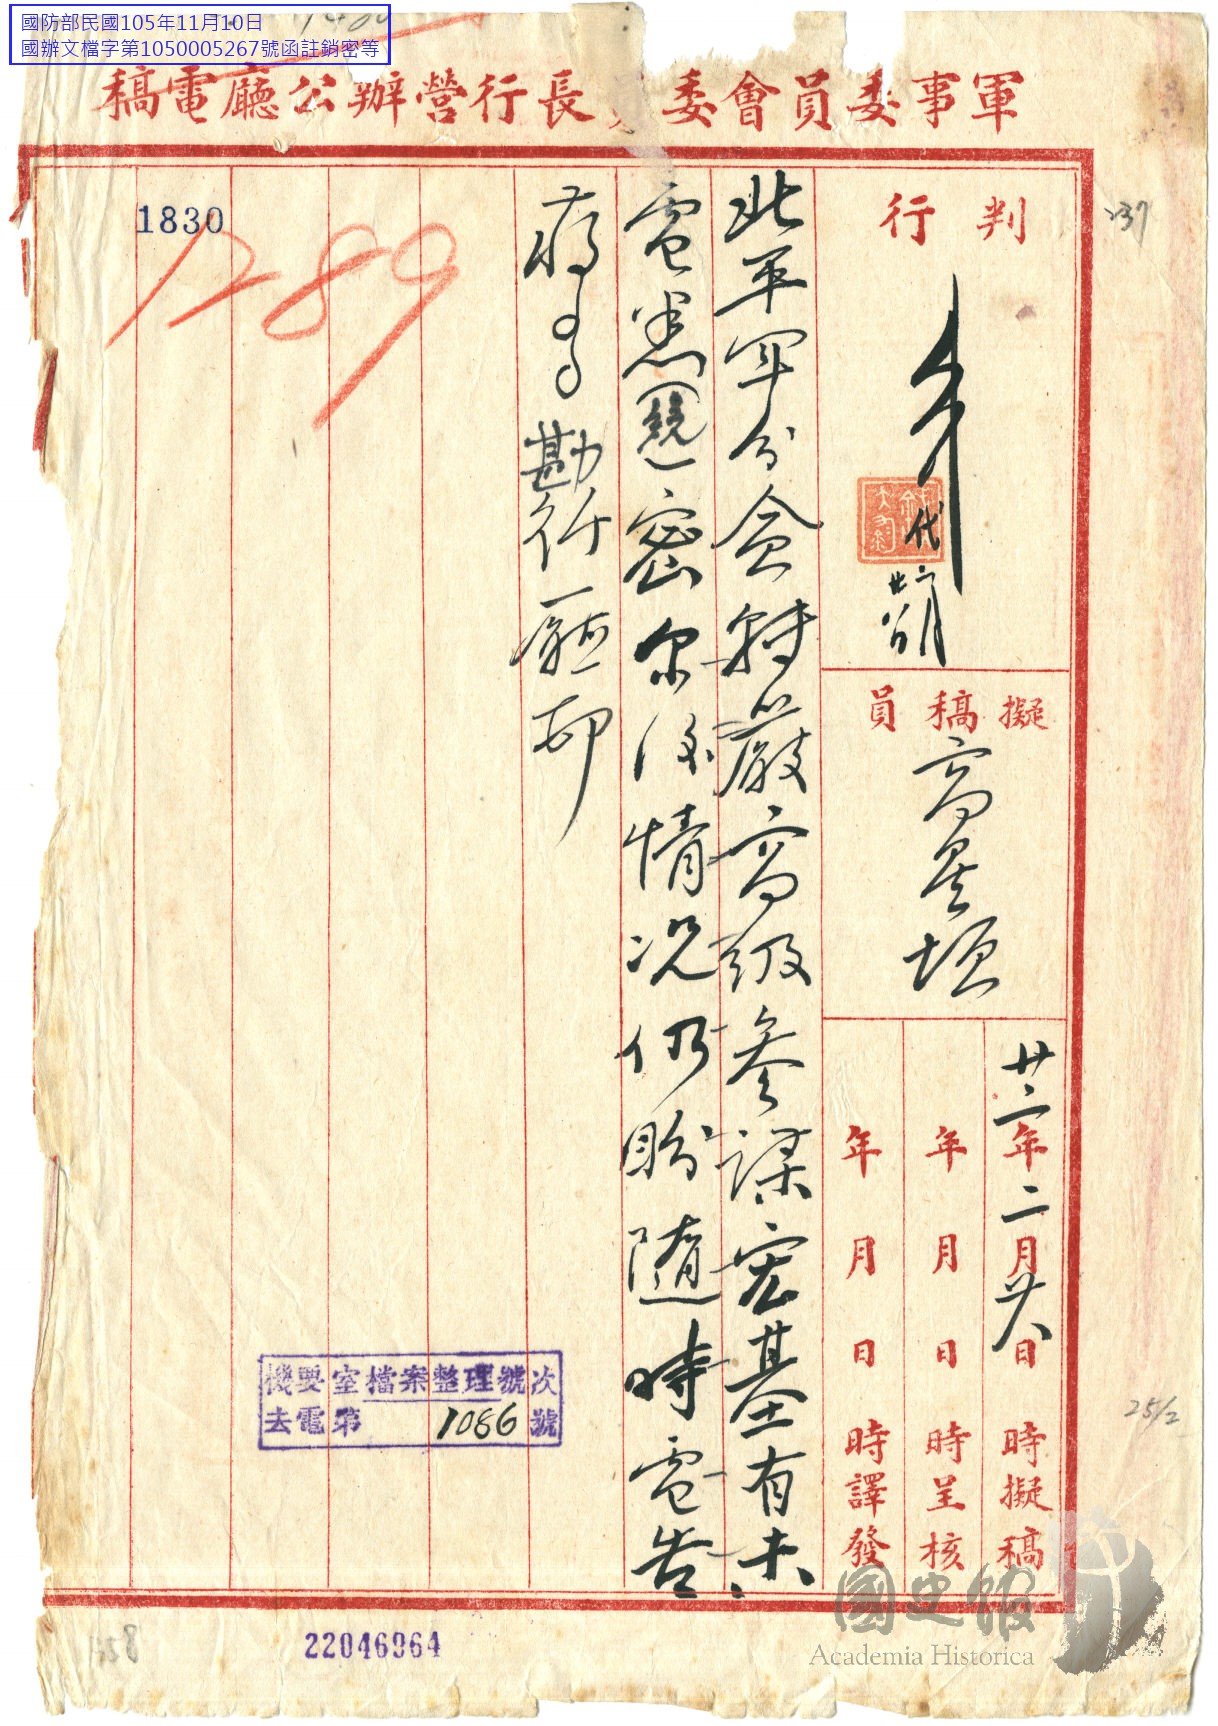 國防部民國105年11月10日
國辦文檔字第1050005267號函註銷密等
軍事委員會委 長行營辦公廳電稿
判行
代
二月廿八日
擬稿員
高
廿二年二月廿八日 時擬稿
年 月 日 時呈核
年 月 日 時譯發
北平軍分會轉嚴高級參謀宏基有未
電悉(競)密尔後情况仍盼隨時電告
蔣中〇勘行廳印
1830
1289
237
25/2
機要室檔案整理號次
去電第 1086 號
22046964
國史館
Academia Historica